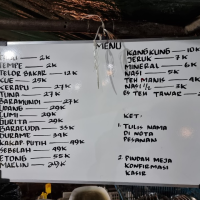 MENU
TAHU — 2K
TEMPE — 2K
TELOR BAKAR — 12K
KUE — 25K
KERAPU — 27K
TUNA — 27K
BARAMUNDI — 27K
UDANG — 29K
CUMI — 29K
GURITA — 29K
BARACUDA — 35K
DURAME — 39K
KAKAP PUTIH — 49K
SEBELAH — 49K
ETONG — 55K
MARLIN — 27K
KANGKUNG — 10K
JERUK — 7K
MINERAL — 6K
NASI — 5K
TEH MANIS — 4K
NASI 1/2 — 3K
ES TEH TAWAR — 2
KET:
1. TULIS NAMA
DI NOTA
PESANAN
2. PINDAH MEJA
KONFIRMASI
KASIR